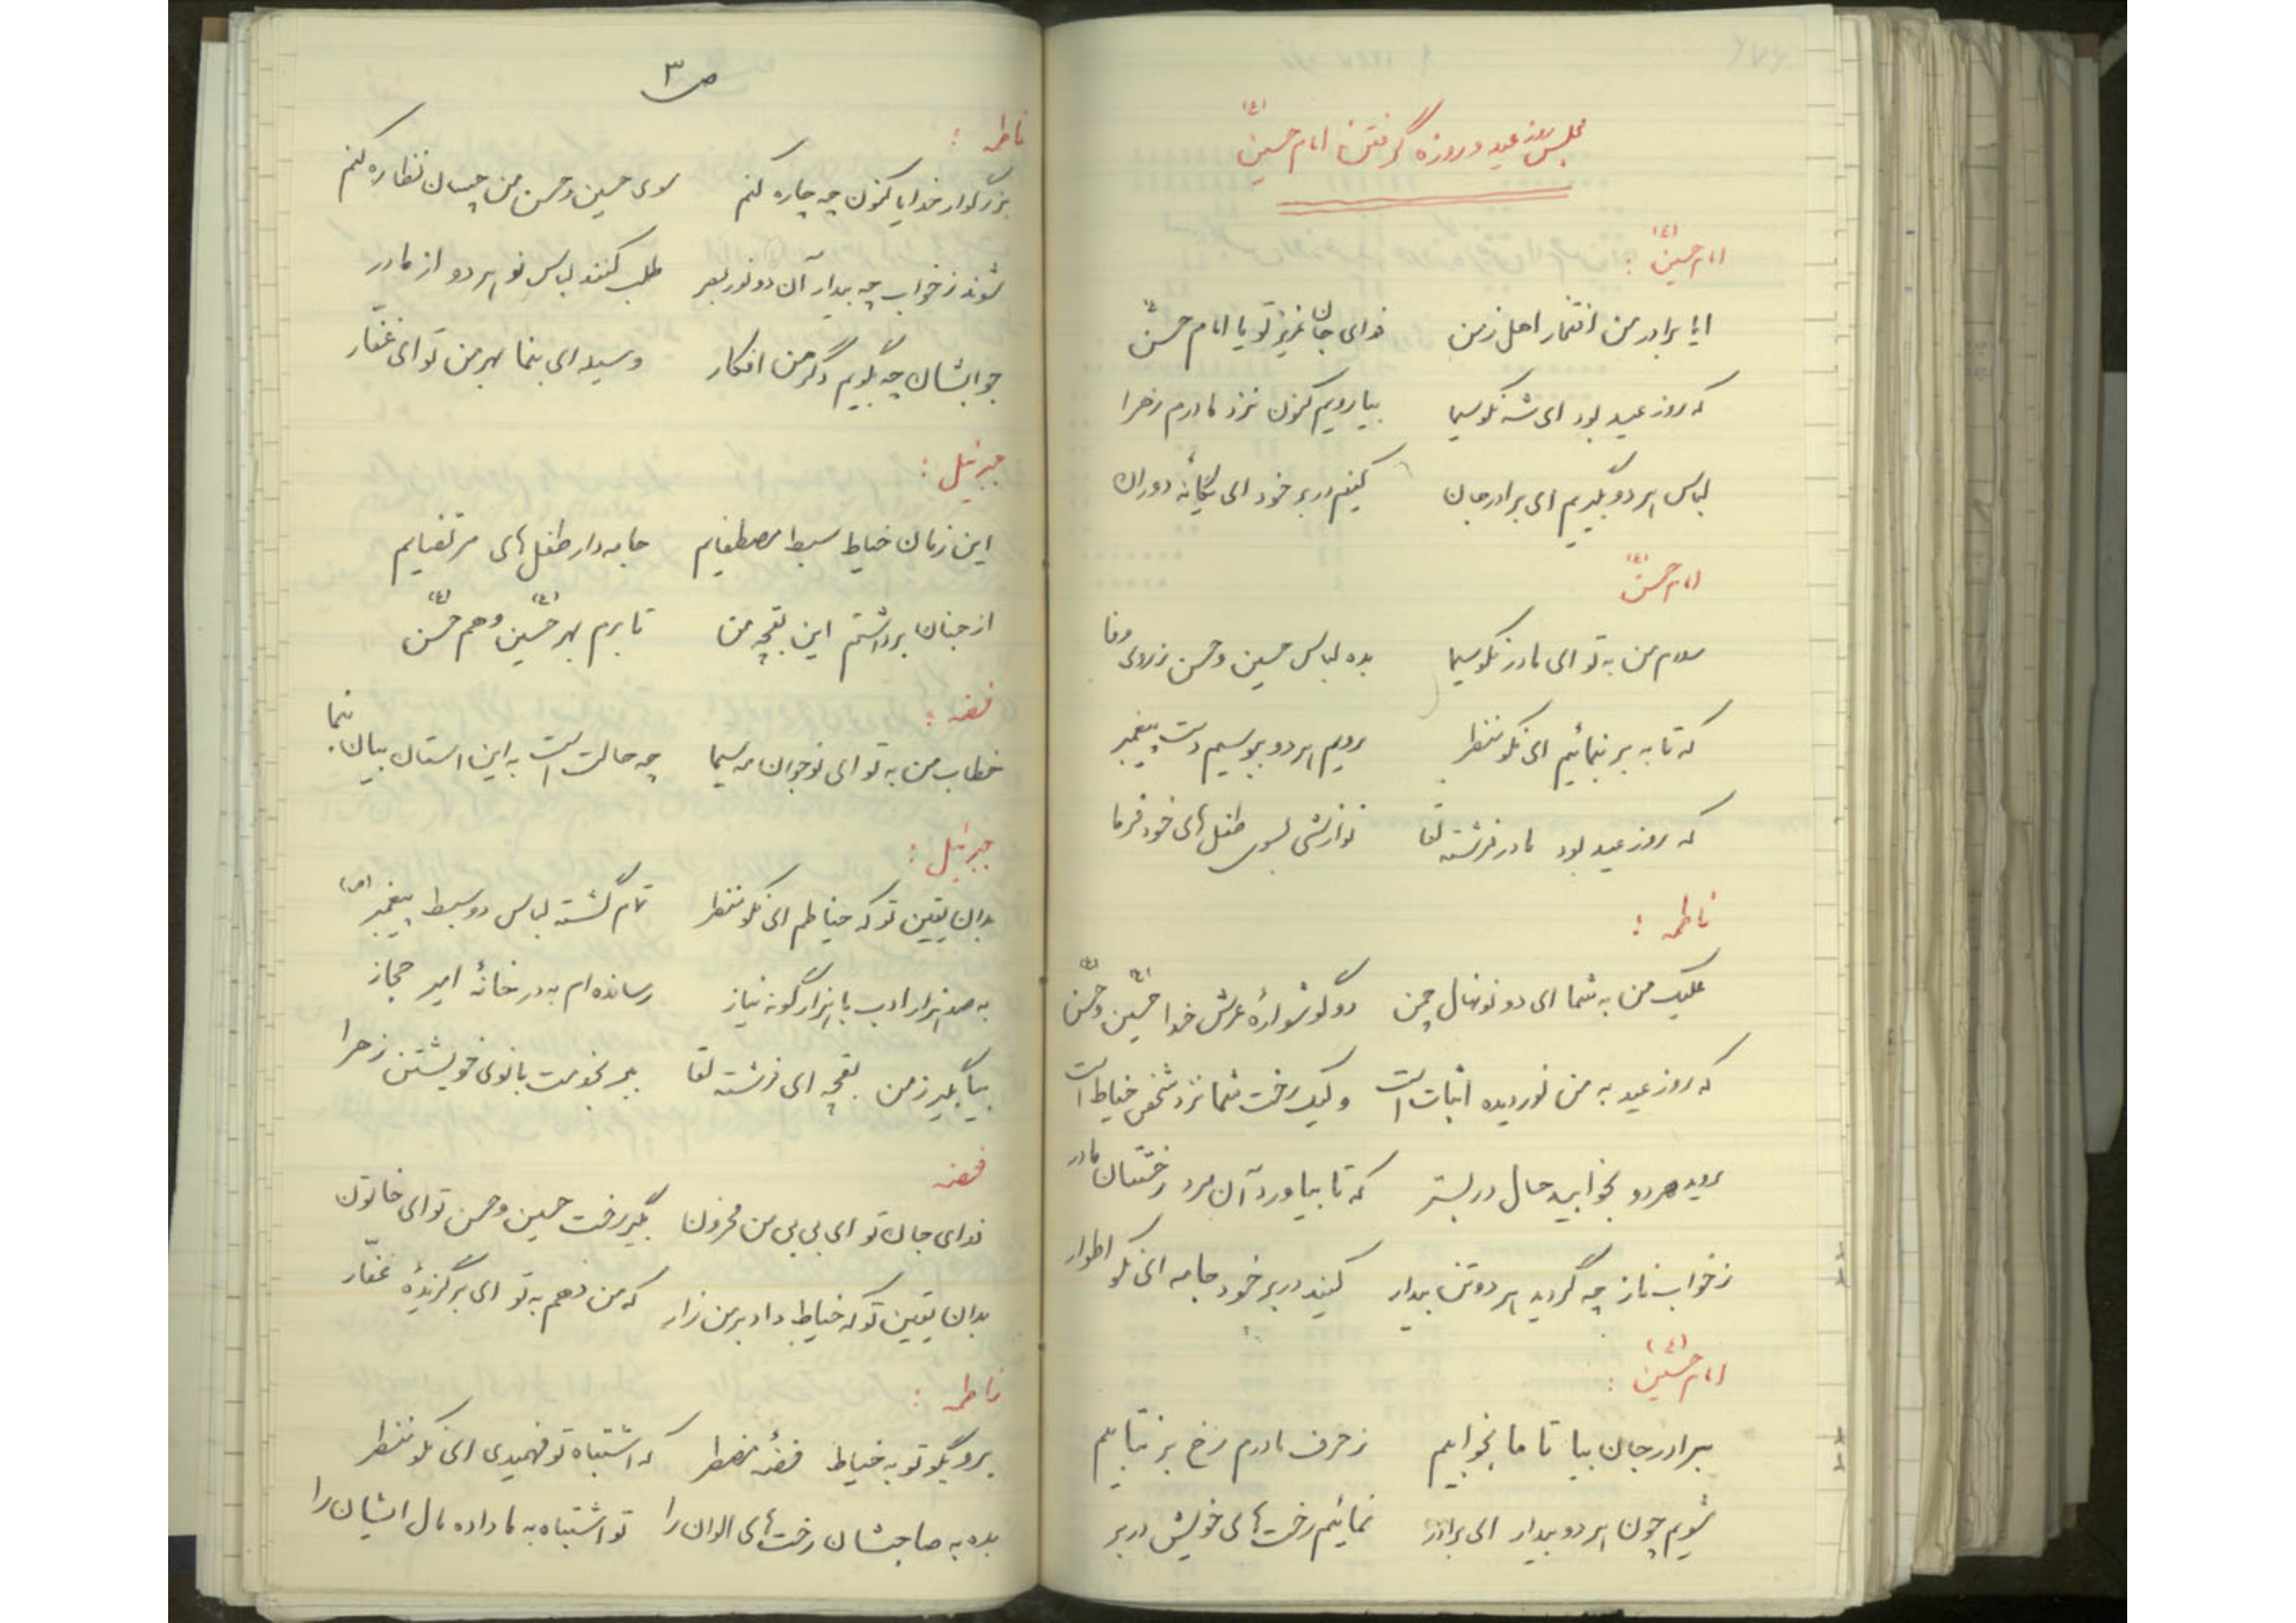 مجلس روز عید و روزه گرفتن امام حسین (ع)
امام حسین (ع) :
ایا برادر من افتخار اهل زمن فدای جان عزیز تو یا امام حسن (ع)
که روز عید بود ای شه نکو سیما بیا رویم کنون نزد مادرم زهرا
لباس هر دو بگیریم ای برادر جان کنیم در بر خود ای یگانهٔ دوران
امام حسن (ع)
سلام من به تو ای مادر نکو سیما بده لباس حسین و حسن ز روی وفا
که تا به بر بنمائیم ای نکو منظر رویم هر دو ببوسیم دست پیغمبر
که روز عید بود مادر فرشته لقا نوازشی بسوی طفل های خود فرما
فاطمه :
علیک من به شما ای دو نونهال چمن دو گوشوارهٔ عرش خدا حسین (ع) و حسن (ع)
که روز عید به من نور دیده اثبات است ولیک رخت شما نزد شخص خیاط است
روید هر دو بخوابید حال در بستر که تا بیاورد آن مرد رختتان مادر
ز خواب ناز چه گردید هر دو تن بیدار کنید در بر خود جامه ای نکو اطوار
امام حسین (ع) :
برادر جان بیا تا ما بخوابیم ز حرف مادرم رخ بر نتابیم
شویم چون هر دو بیدار ای برادر نمائیم رخت های خویش در بر
ص ۳
فاطمه :
بزرگوار خدایا کنون چه چاره کنم سوی حسین و حسن من چسان نظاره کنم
شوند ز خواب چه بیدار آن دو نور بصر طلب کنند لباس نو هر دو از مادر
جوابشان چه بگویم دگر من افکار وسیله ای بنما بهر من تو ای غفّار
جبرئیل :
این زمان خیاط سبط مصطفایم جامه دار طفل های مرتضایم
از جنان برداشتم این بقچه من تا برم بهر حسین (ع) و هم حسن (ع)
فضه :
خطاب من به تو ای نوجوان مه سیما چه حالت است به این استان بیان بنما
جبرئیل :
بدان یقین تو که خیاطم ای نکو منظر تمام گشته لباس دو سبط پیغمبر (ص)
به صد هزار ادب با هزار گونه نیاز رسانده ام به در خانهٔ امیر حجاز
بیا بگیر ز من بقچه ای فرشته لقا ببر بخدمت بانوی خویشتن زهرا
فضه
فدای جان تو ای بی بی من محزون بگیر رخت حسین و حسن تو ای خاتون
بدان یقین تو که خیاط داد بر من زار که من دهم به تو ای برگزیدهٔ غفّار
فاطمه :
برو بگو تو به خیاط فضهٔ مضطر که اشتباه تو فهمیدی ای نکو منظر
بده به صاحبشان رخت های الوان را تو اشتباه به ما داده مال ایشان را